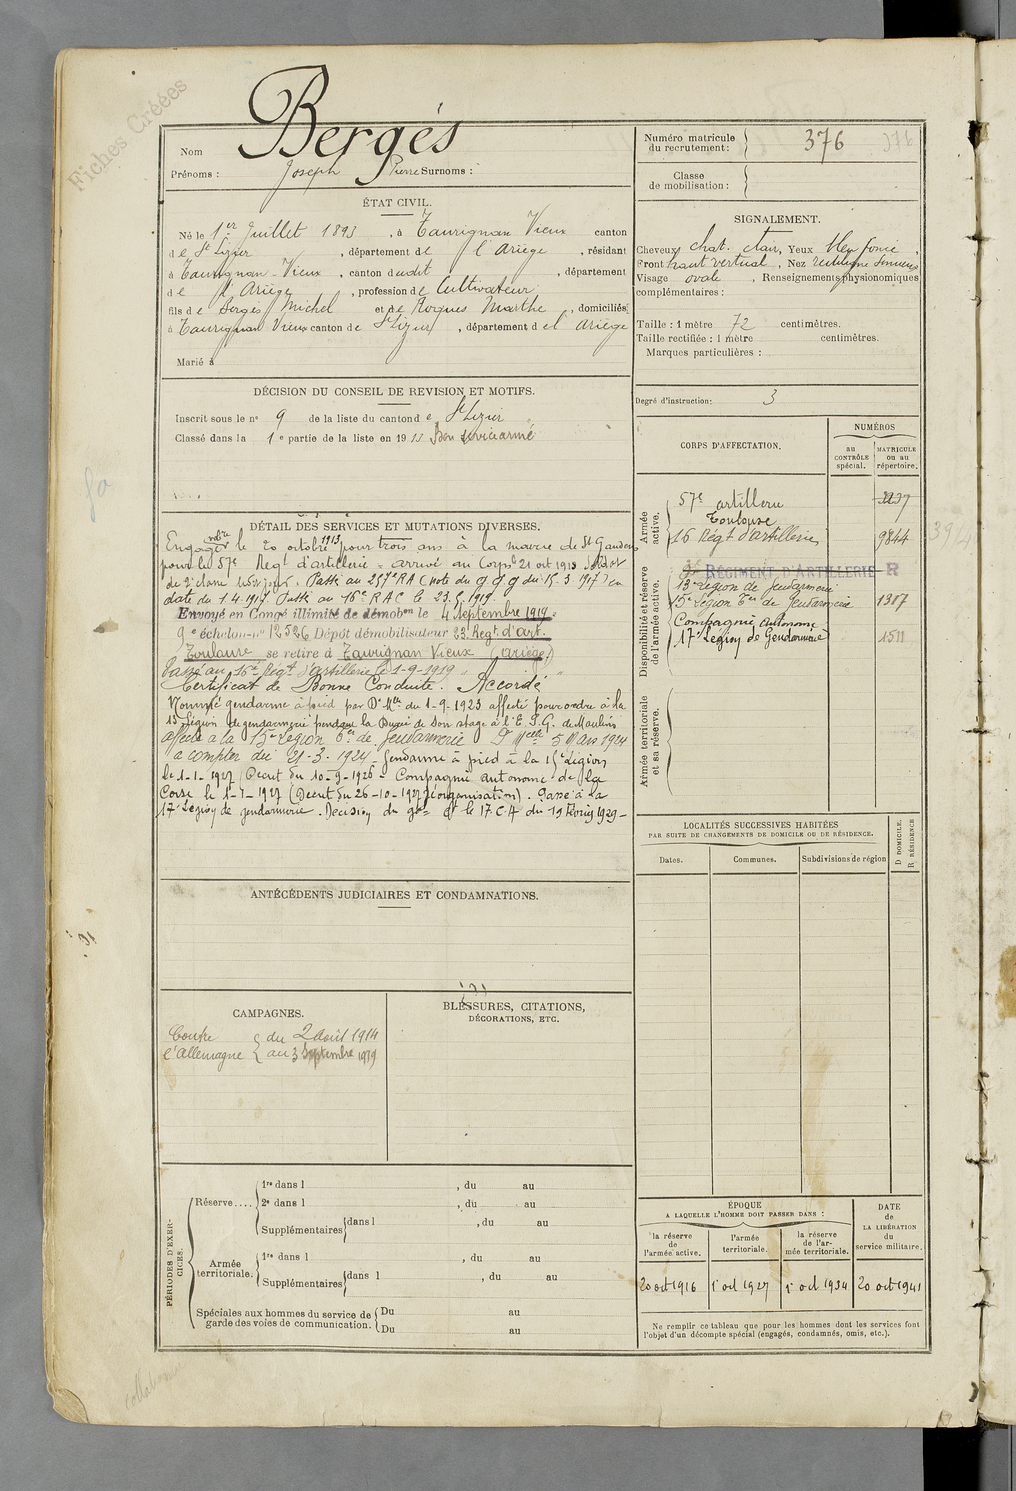 Fiches Créées
Nom Bergés
Prénoms : Joseph Pierre Surnoms :
Numéro matricule du recrutement : 376 376
Classe de mobilisation :
ÉTAT CIVIL.
Né le 1er Juillet 1893, à Taurignan Vieux canton
de St Lizier, département de l'Ariège, résidant
à Taurignan-Vieux, canton dudit, département
de l'Ariège, profession de Cultivateur
fils de Bergés Michel et de Rogues Marthe, domiciliés
à Taurignan Vieux canton de St Lizier, département del Ariège
Marié à
SIGNALEMENT.
Cheveux chat. clair, Yeux bleu foncé,
Front haut vertical, Nez rectiligne
Visage ovale, Renseignements physionomiques
complémentaires :
Taille : 1 mètre 72 centimètres.
Taille rectifiée : 1 mètre centimètres.
Marques particulières :
Degré d'instruction : 3
DÉCISION DU CONSEIL DE REVISION ET MOTIFS.
Inscrit sous le n° 9 de la liste du canton de St Lizier
Classé dans la 1e partie de la liste en 19 Bon service armé
DÉTAIL DES SERVICES ET MUTATIONS DIVERSES.
Engagé volre le 20 octobre 1913 pour trois ans à la mairie de St Gaudens
pour le 57e Regt d'artillerie = arrivé au Corps 21 oct 1913 Soldat
de 2e classe Passé au 257e RA (note du G Q G du 15.3.1917) en
date du 1.4.1917. Passé au 16e RAC le 23. .1919.
Envoyé en Congé illimité de démobon le 4 Septembre 1919.
9e échelon-no 12526 Dépôt démobilisateur 23e Regt d'art.
Toulouse se retire à Taurignan Vieux (Ariège)
Passé au 16e Régt d'artillerie le 1-9-1919
Certificat de Bonne Conduite. Accordé
Nommé gendarme à pied par Dn Mlle du 1-9-1923 affecté pour ordre à la
13e Légion de gendarmerie pendant la Durée de son stage à l'E.P.G. de Moulins
affecté à la 15e Légion Bis de Gendarmerie Dn Mlle 5 Mars 1924
à compter du 21-3-1924 - Gendarme à pied à la 15e Légion
le 1-1-1927 (Décret du 10-9-1926 - Compagnie autonome de la
Corse le 1-7-1927 (Décret du 26-10-1927 réorganisation). Passé à la
17e Légion de gendarmerie. Décision du Gal Ct le 17.C.A du 19 Février 1929-
CORPS D'AFFECTATION.
NUMÉROS
au CONTRÔLE spécial.
MATRICULE ou au répertoire.
Armée active.
57e artillerie
Toulouse
16 Régt d'artillerie 9844 3914
Disponibilité et réserve de l'armée active.
RÉGIMENT D'ARTILLERIE R
13e Légion de Gendarmerie
15e Légion Bis de Gendarmerie 1387
Compagnie Autonome
17e Légion de Gendarmerie 1511
Armée territoriale et sa réserve.
LOCALITÉS SUCCESSIVES HABITÉES
PAR SUITE DE CHANGEMENTS DE DOMICILE OU DE RÉSIDENCE.
Dates. Communes. Subdivisions de région
D DOMICILE.
R RÉSIDENCE
ANTÉCÉDENTS JUDICIAIRES ET CONDAMNATIONS.
CAMPAGNES.
Contre du 2 Août 1914
l'Allemagne au 3 Septembre 1919
BLESSURES, CITATIONS,
DÉCORATIONS, ETC.
PÉRIODES D'EXERCICES.
Réserve.... 1re dans l , du au
2e dans l , du au
Supplémentaires dans l , du au
Armée territoriale. 1re dans l , du au
Supplémentaires dans l , du au
Spéciales aux hommes du service de garde des voies de communication. Du au
Du au
ÉPOQUE
A LAQUELLE L'HOMME DOIT PASSER DANS :
la réserve de l'armée active.
l'armée territoriale.
la réserve de l'armée territoriale.
DATE de LA LIBÉRATION du service militaire.
20 oct 1916 1er oct 1927 1er oct 1934 20 oct 1941
Ne remplir ce tableau que pour les hommes dont les services font
l'objet d'un décompte spécial (engagés, condamnés, omis, etc.).